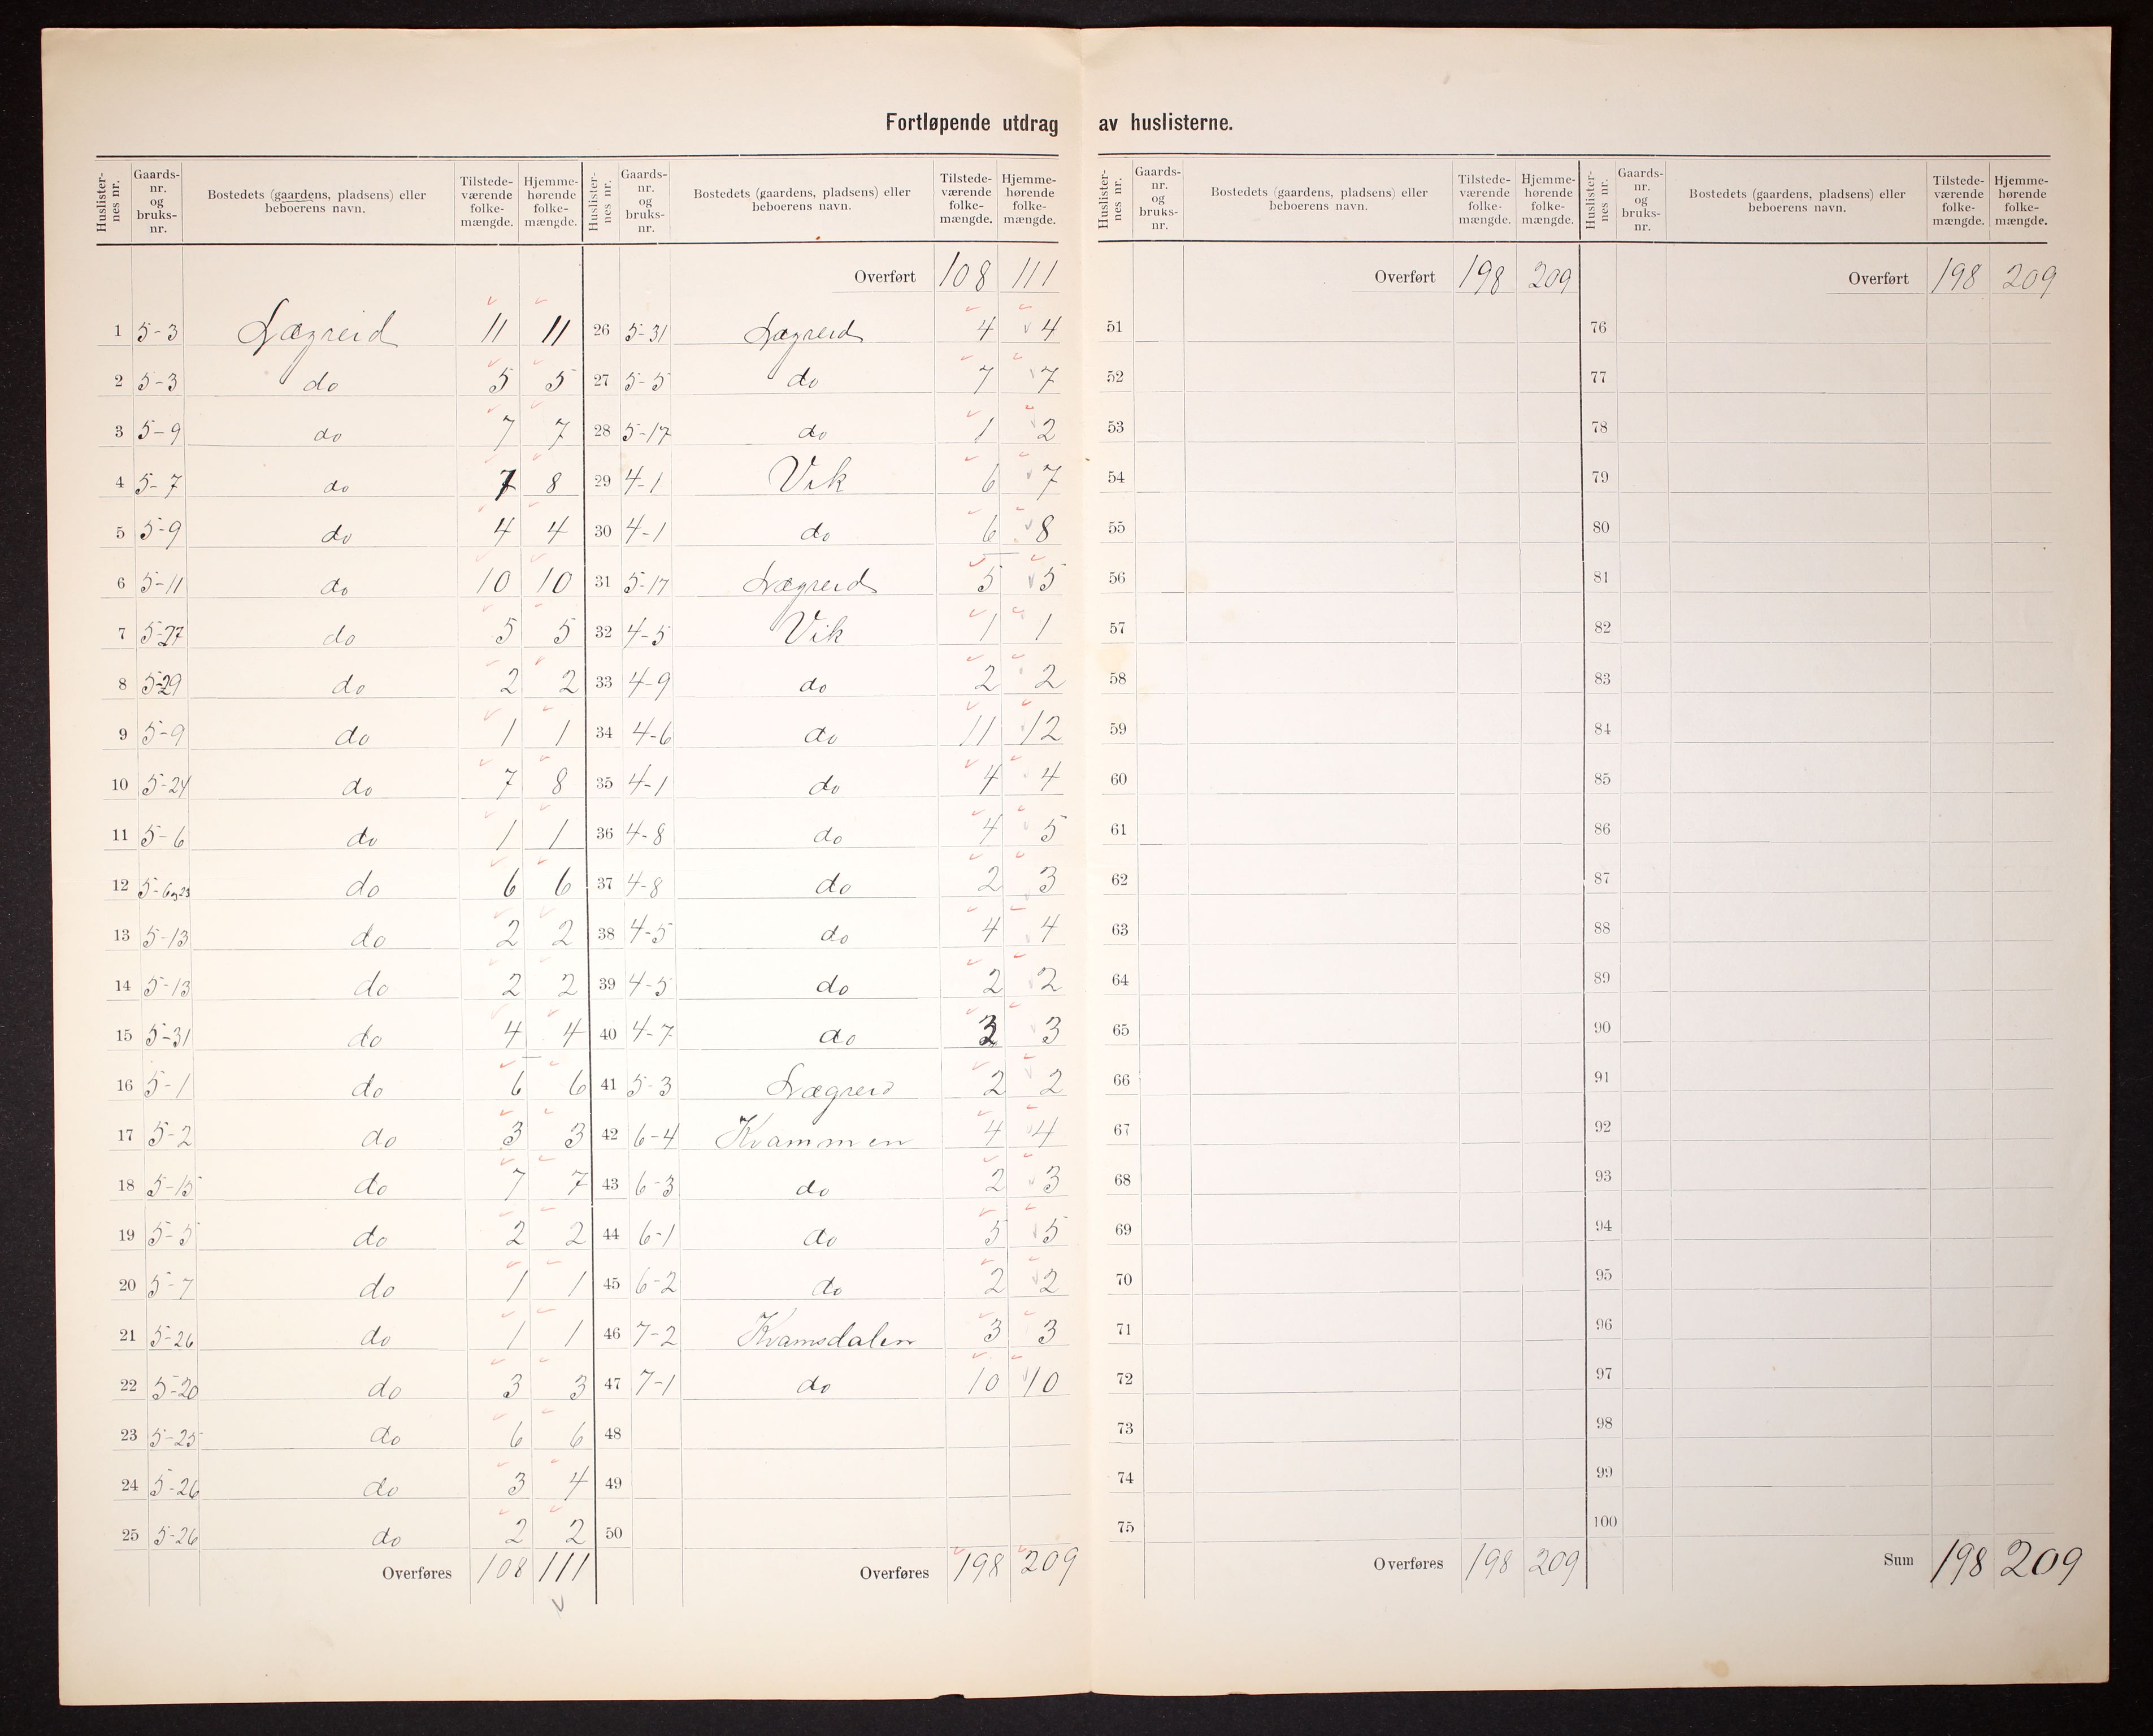 Fortløpende utdrag av huslisterne.
Huslister-nes nr. Gaards-nr. og bruks-nr. Bostedets (gaardens, pladsens) eller beboerens navn. Tilstede-værende folke-mængde. Hjemme-hørende folke-mængde.
1 5-3 Lægreid 11 11
2 5-3 do 5 5
3 5-9 do 7 7
4 5-7 do 7 8
5 5-9 do 4 4
6 5-11 do 10 10
7 5-27 do 5 5
8 5-29 do 2 2
9 5-9 do 1 1
10 5-24 do 7 8
11 5-6 do 1 1
12 5-6og23 do 6 6
13 5-13 do 2 2
14 5-13 do 2 2
15 5-31 do 4 4
16 5-1 do 6 6
17 5-2 do 3 3
18 5-15 do 7 7
19 5-5 do 2 2
20 5-7 do 1 1
21 5-26 do 1 1
22 5-20 do 3 3
23 5-25 do 6 6
24 5-26 do 3 4
25 5-26 do 2 2
Overføres 108 111
Huslister-nes nr. Gaards-nr. og bruks-nr. Bostedets (gaardens, pladsens) eller beboerens navn. Tilstede-værende folke-mængde. Hjemme-hørende folke-mængde.
Overført 108 111
26 5-31 Lægreid 4 4
27 5-5 do 7 7
28 5-17 do 1 2
29 4-1 Vik 6 7
30 4-1 do 6 8
31 5-17 Lægreid 5 5
32 4-5 Vik 1 1
33 4-9 do 2 2
34 4-6 do 11 12
35 4-1 do 4 4
36 4-8 do 4 5
37 4-8 do 2 3
38 4-5 do 4 4
39 4-5 do 2 2
40 4-7 do 3 3
41 5-3 Lægreid 2 2
42 6-4 Kvammen 4 4
43 6-3 do 2 3
44 6-1 do 5 5
45 6-2 do 2 2
46 7-2 Kvamsdalen 3 3
47 7-1 do 10 10
48
49
50
Overføres 198 209
Huslister-nes nr. Gaards-nr. og bruks-nr. Bostedets (gaardens, pladsens) eller beboerens navn. Tilstede-værende folke-mængde. Hjemme-hørende folke-mængde.
Overført 198 209
51
52
53
54
55
56
57
58
59
60
61
62
63
64
65
66
67
68
69
70
71
72
73
74
75
Overføres 198 209
Huslister-nes nr. Gaards-nr. og bruks-nr. Bostedets (gaardens, pladsens) eller beboerens navn. Tilstede-værende folke-mængde. Hjemme-hørende folke-mængde.
Overført 198 209
76
77
78
79
80
81
82
83
84
85
86
87
88
89
90
91
92
93
94
95
96
97
98
99
100
Sum 198 209